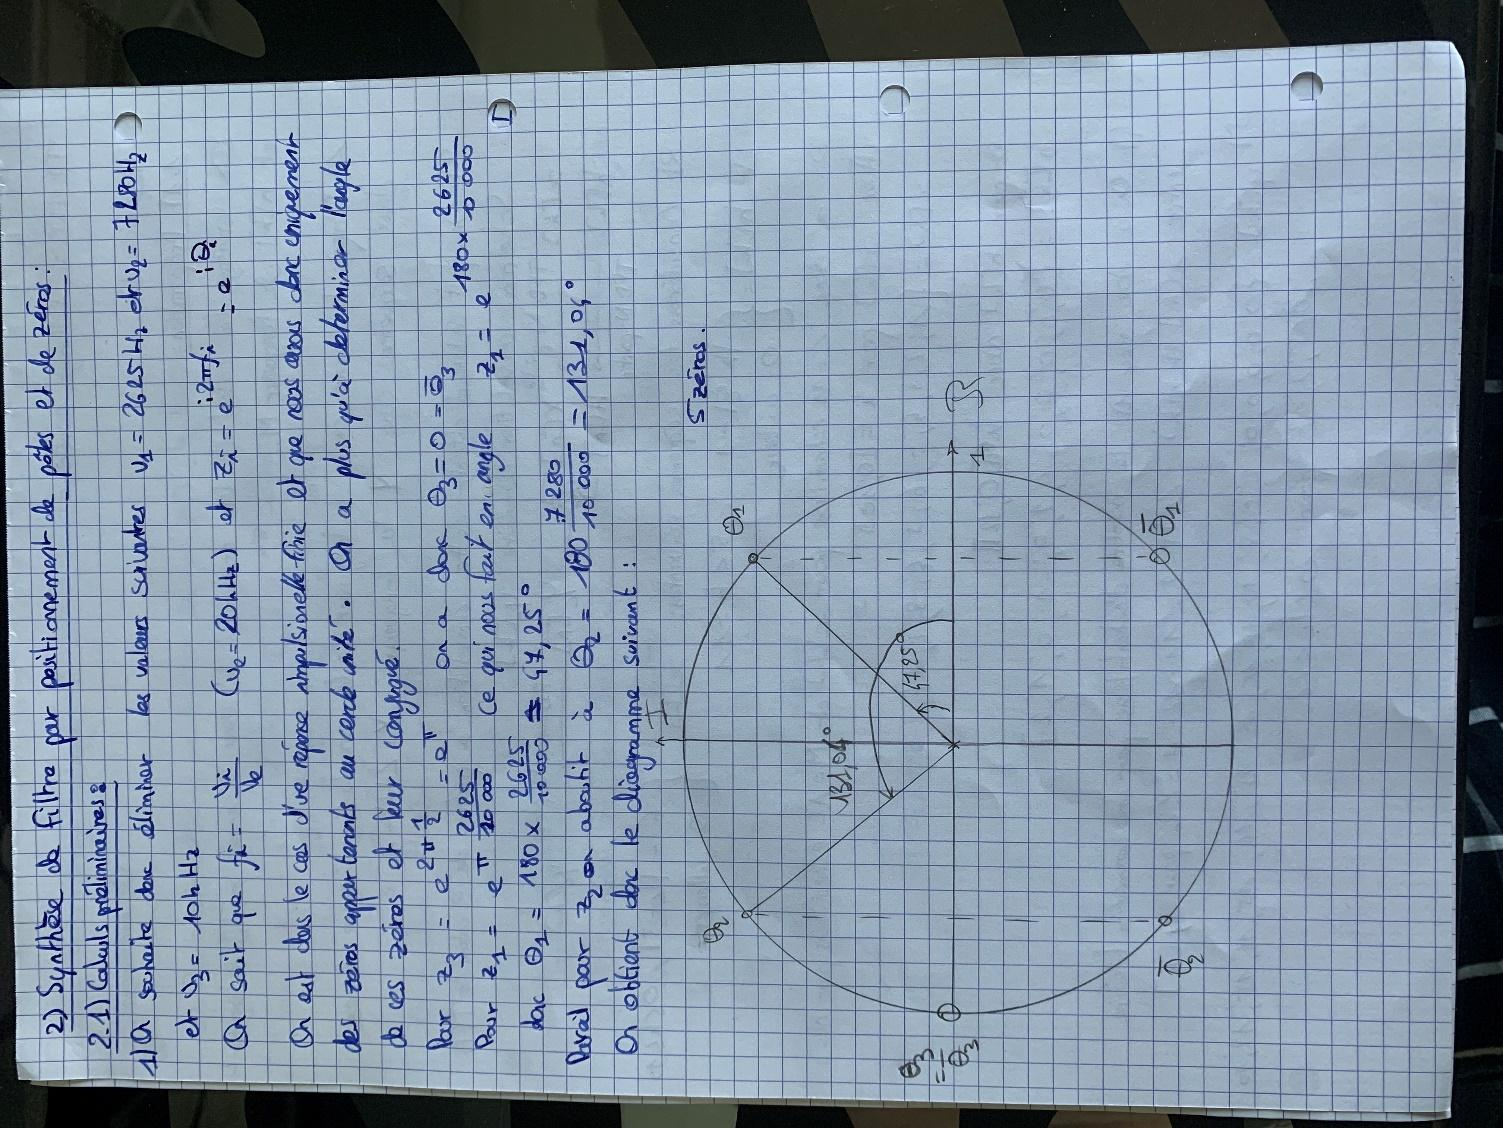 2) Synthèse de filtre par positionement de pôles et de zéros :
2.1) Calculs préliminaires :
1) On souhaite donc éliminer les valeurs suivantes ν1 = 2625Hz et ν2 = 7280Hz
et ν3 = 10kHz
On sait que fi = νi/νe (νe = 20kHz) et zi = e^i2πfi = e^iθi
On est dans le cas d'une réponse impulsionelle finie et que nous avons donc uniquement
des zéros appartenants au cercle unité. On a plus qu'à déterminer l'angle
de ces zéros et leur conjugué.
Pour z3 = e^2π 1/2 = e^π on a donc θ3 = 0 = θ̄3
Pour z1 = e^π 2625/10 000 ce qui nous fait en angle z1 = e^180 × 2625/10 000
donc θ1 = 180 × 2625/10 000 = 47,25°
Pareil pour z2 on aboutit à θ2 = 180 7280/10 000 = 131,04°
On obtient donc le diagramme suivant :
5 zéros.
I
θ2
θ1
131,04°
47,25°
θ3
= θ̄3
1
R
θ̄2
θ̄1